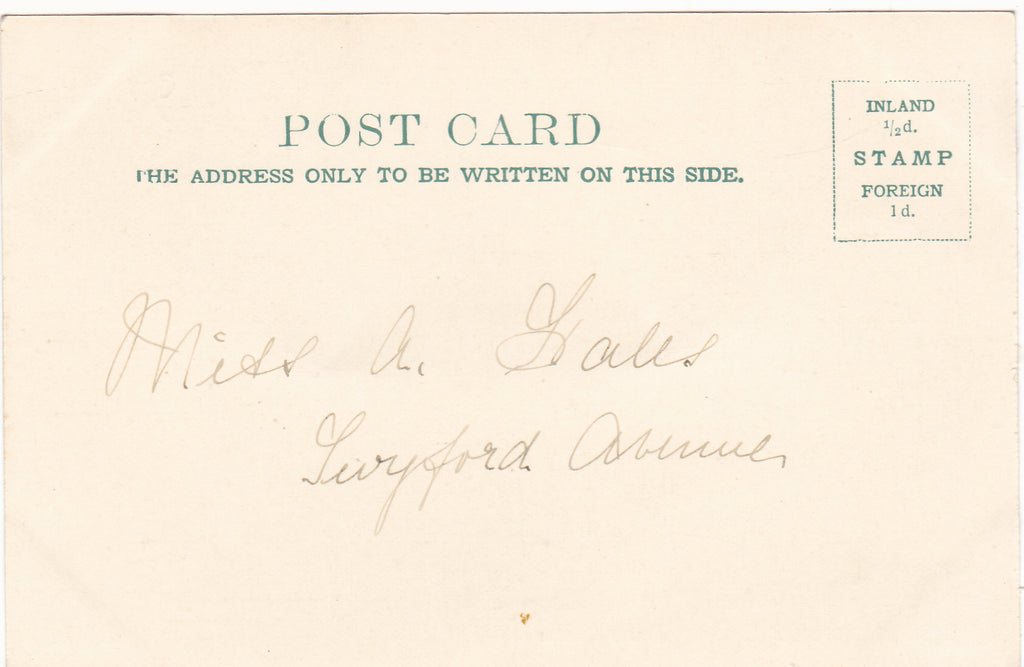 POST CARD
THE ADDRESS ONLY TO BE WRITTEN ON THIS SIDE.
INLAND
½d.
STAMP
FOREIGN
1d.
Miss A.
Twyford Avenue